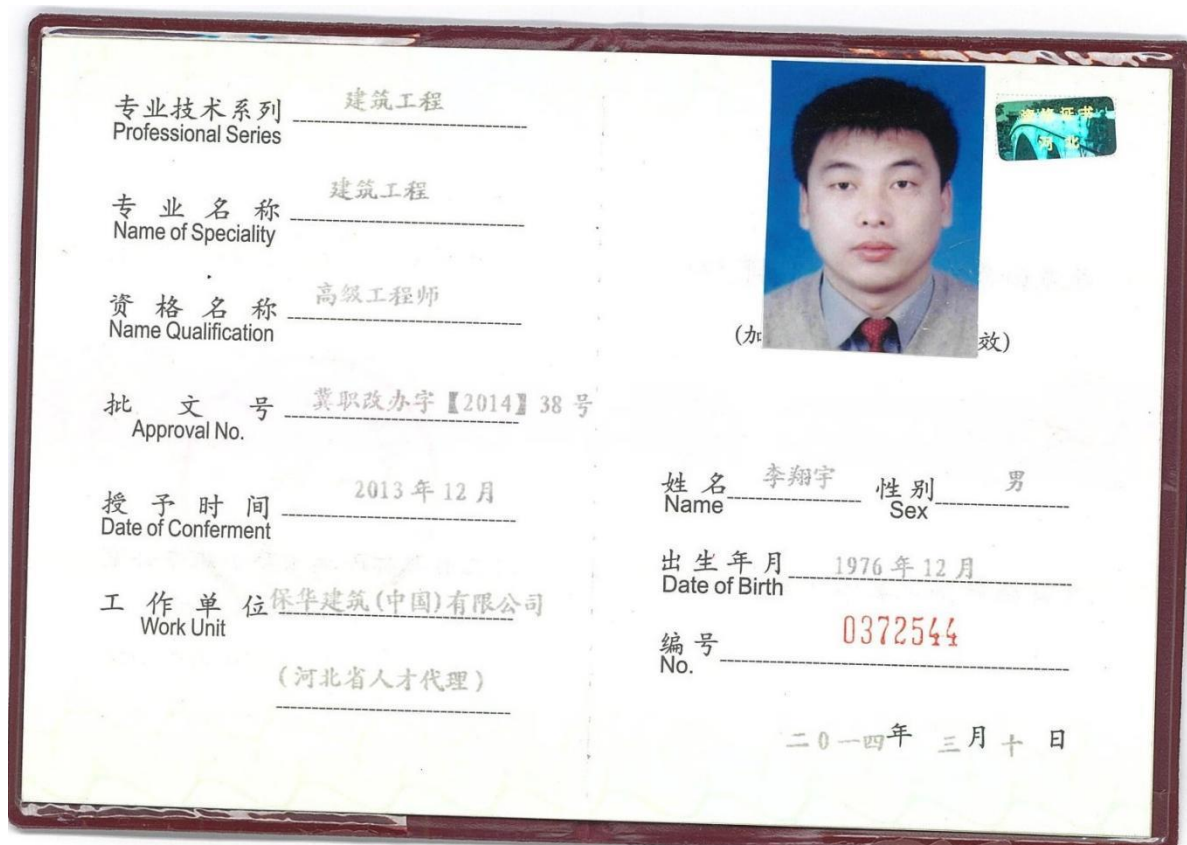 专业技术系列 建筑工程
Professional Series
专业名称 建筑工程
Name of Speciality
资格名称 高级工程师
Name Qualification
批文号 冀职改办字【2014】38号
Approval No.
授予时间 2013年12月
Date of Conferment
工作单位 保华建筑(中国)有限公司
Work Unit
(河北省人才代理)
资格证书
河北
(加 效)
姓名 李翔宇 性别 男
Name Sex
出生年月 1976年12月
Date of Birth
编号 0372544
No.
二0一四年 三月十日